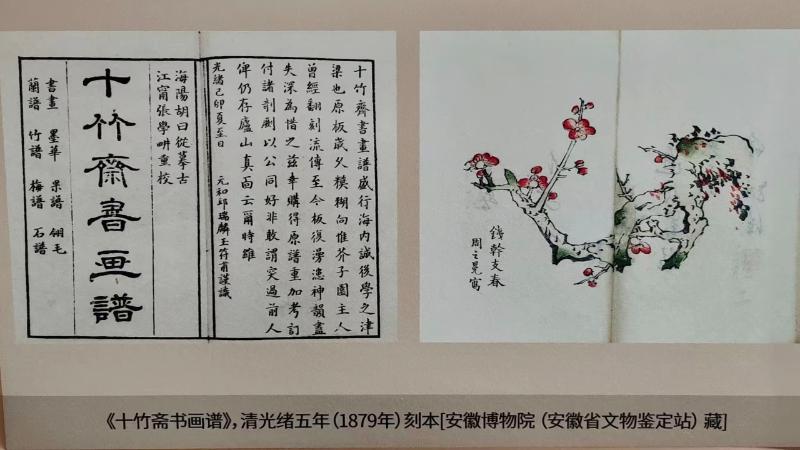 十竹齋書畫譜盛行海内誠後學之津
梁也原板歲久糢糊向惟芥子園主人
曾經翻刻流傳至今板復漫漶神韻盡
失深為惜之兹幸購得原譜重加考訂
付諸剞劂以公同好非敢謂突過前人
俾仍存廬山真面云爾時維
光緒己卯夏至日 元和邱瑞麟玉符甫謹識
海陽胡曰從摹古
江甯張學畊重校
十竹齋書画譜
書畫 墨華 果譜 翎毛
蘭譜 竹譜 梅譜 石譜
鐵幹支春
周之冕寫
《十竹斋书画谱》，清光绪五年（1879年）刻本[安徽博物院（安徽省文物鉴定站）藏]